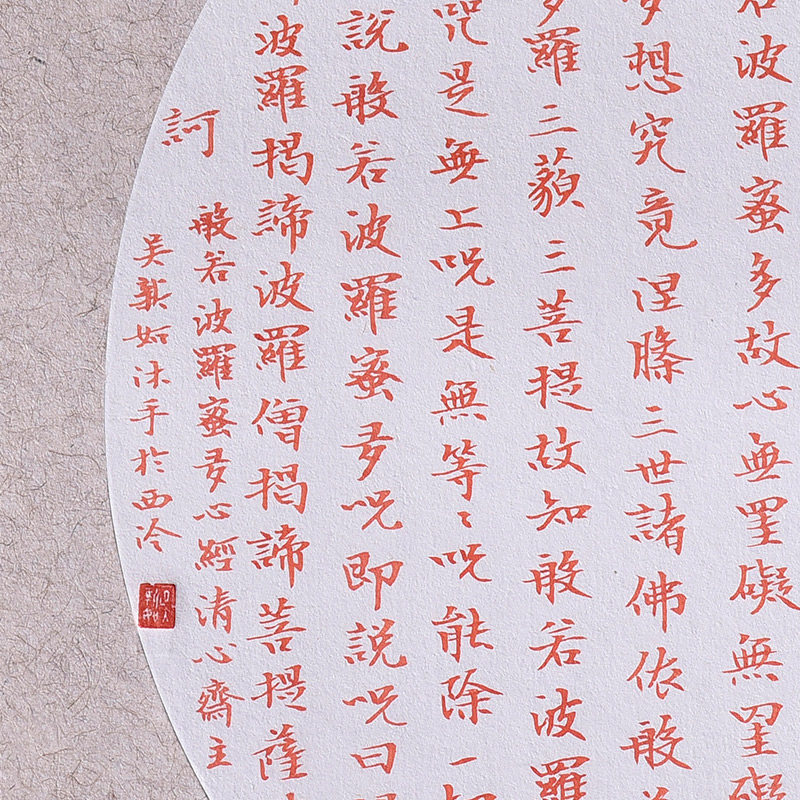 若波羅蜜多故心無罣礙無罣礙
想究竟涅槃三世諸佛依般
多羅三藐三菩提故知般若波羅
咒是無上呪是無等〻呪能除一切
說般若波羅蜜多呪即說呪曰
波羅揭諦波羅僧揭諦菩提薩
訶
般若波羅蜜多心經清心齋主
吳如沐手於西泠